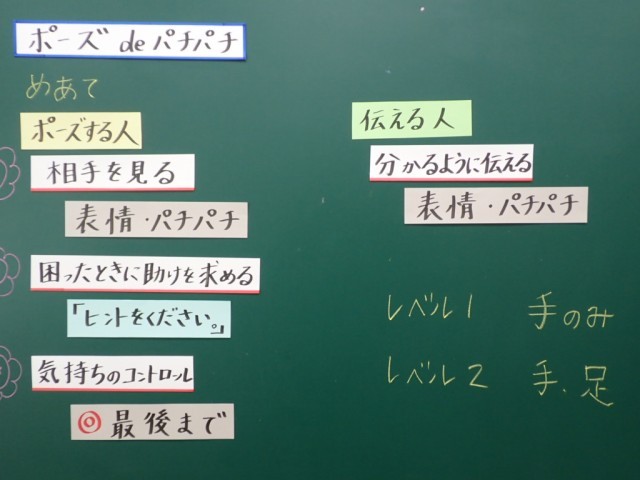 ポーズ de パチパチ
めあて
ポーズする人
相手を見る
表情・パチパチ
困ったときに助けを求める
「ヒントをください。」
気持ちのコントロール
◎最後まで
伝える人
分かるように伝える
表情・パチパチ
レベル1 手のみ
レベル2 手、足